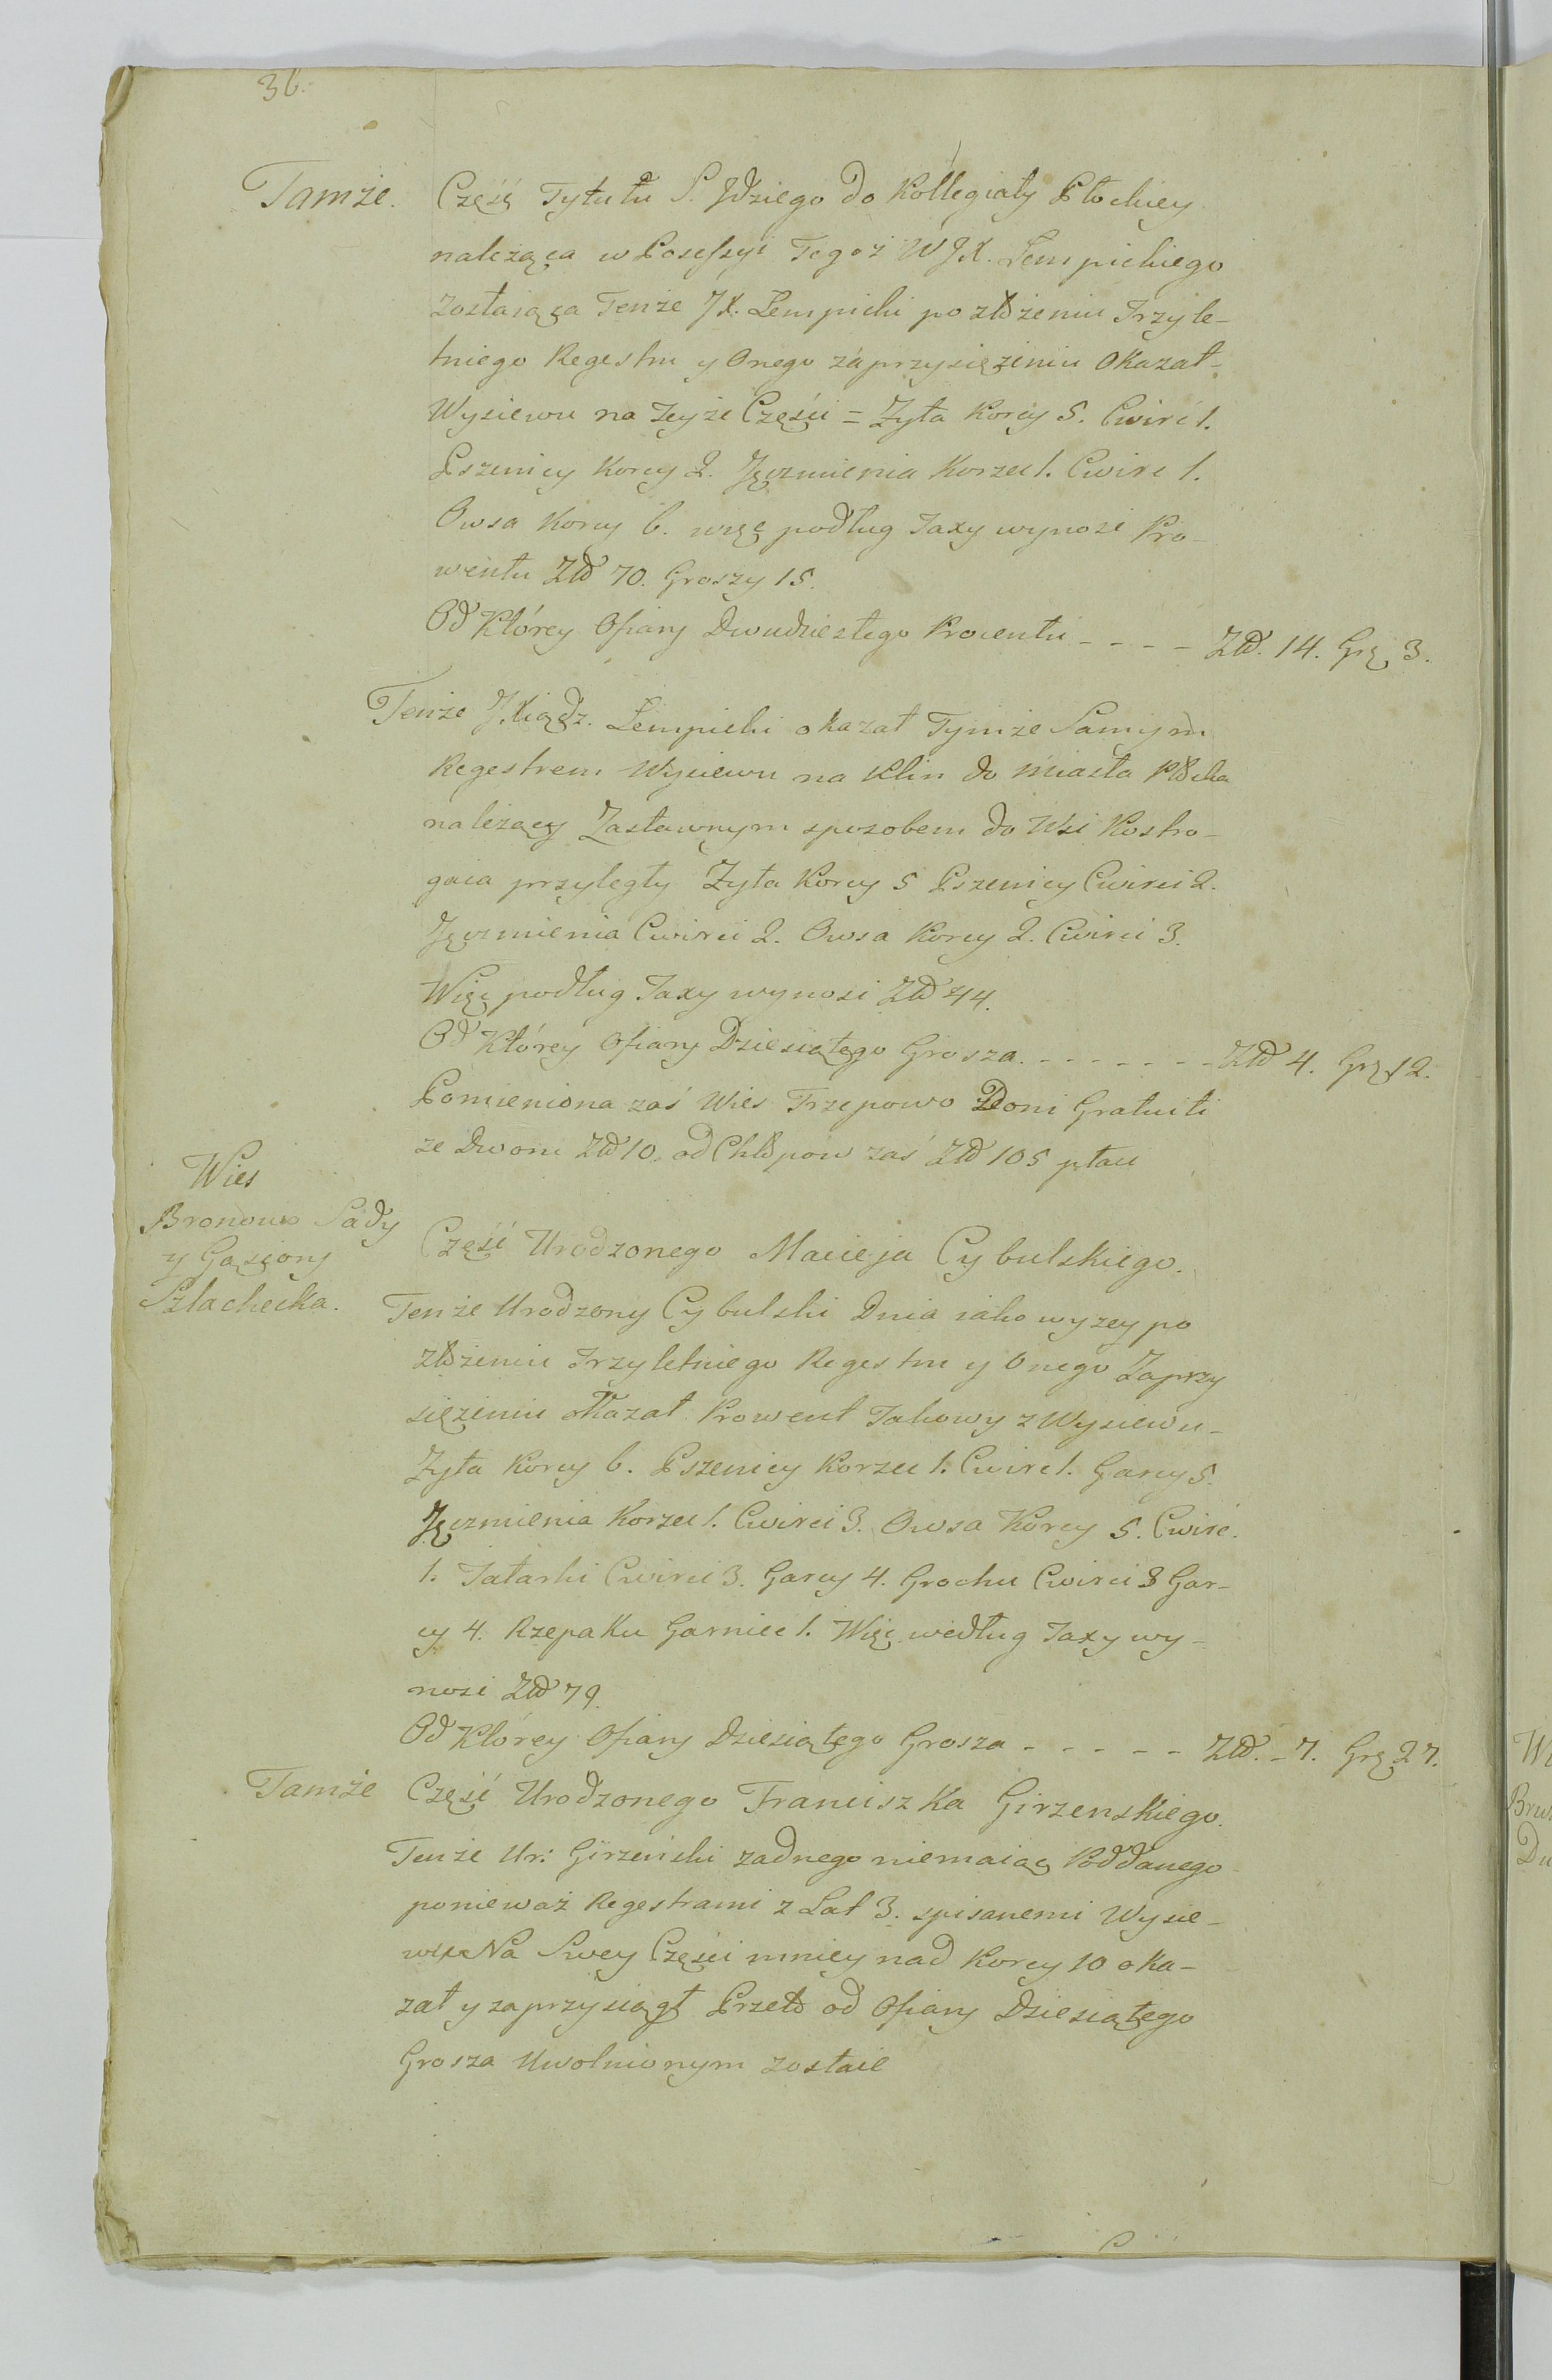 36.
Tamże. Część Tytułu S. Jdziego do Kollegiaty Płockiey
należąca w Possessyi Tegoż WJX. Lempickiego
zostaiąca Tenże JX. Lempicki po złożeniu Trzyle-
tniego Regestru y Onego zaprzysiężeniu Okazał-
Wysiewu na Teyże Części = Zyta Korcy 5. Cwierć 1.
Pszenicy Korcy 2. Jęczmienia Korzec 1. Cwierć 1.
Owsa Korcy 6. więc podług Taxy wynosi Pro-
wentu Złł 70. Groszy 15.
Od Którey Ofiary Dwudziestego Procentu - - - - Złł. 14. Grę 3.
Tenże JXiądz. Lempicki okazał Tymże Samym
Regestrem Wysiewu na Klin do Miasta Płocka
należący Zastawnym sposobem do Wsi Kostro-
gaia przyległy Zyta Korcy 5 Pszenicy Cwierci 2.
Jęczmienia Cwierci 2. Owsa Korcy 2. Cwierci 3.
Więc podług Taxy wynosi Złł 44.
Od Którey Ofiary Dziesiątego Grosza. - - - - - - - Złł 4. Grę 12.
Pomieniona zaś Wies Trzepowo Doni Gratuiti
ze Dworu Złł 10. od Chłopów zaś Złł 105 płaci
Wies
Bronowo Sady
y Gąsiory
Szlachecka.
Część Urodzonego Macieja Cybulskiego.
Tenże Urodzony Cybulski Dnia iako wyzey po
złożeniu Trzyletniego Regestru y Onego Zaprzy
siężeniu okazał Prowent Takowy z Wysiewu-
Zyta Korcy 6. Pszenicy Korzec 1. Cwierć 1. Garcy 5.
Jęczmienia Korzec 1. Cwierci 3. Owsa Korcy 5. Cwierć.
1. Tatarki Cwierci 3. Garcy 4. Grochu Cwierci 3 Gar-
cy 4. Rzepaku Garniec 1. Więc według Taxy wy-
nosi Złł 79.
Od Którey Ofiary Dziesiątego Grosza - - - - - Złł. - 7. Grę 27.
Tamże Część Urodzonego Franciszka Girzenskiego.
Tenże Ur: Girzeński zadnego niemaiąc Poddanego
ponieważ Regestrami z Lat 3. spisanemi Wysie-
wu Na Swey Części mniey nad Korcy 10 oka-
zał y zaprzysiągł Przeto od Ofiary Dziesiątego
Grosza Uwolnionym zostaie